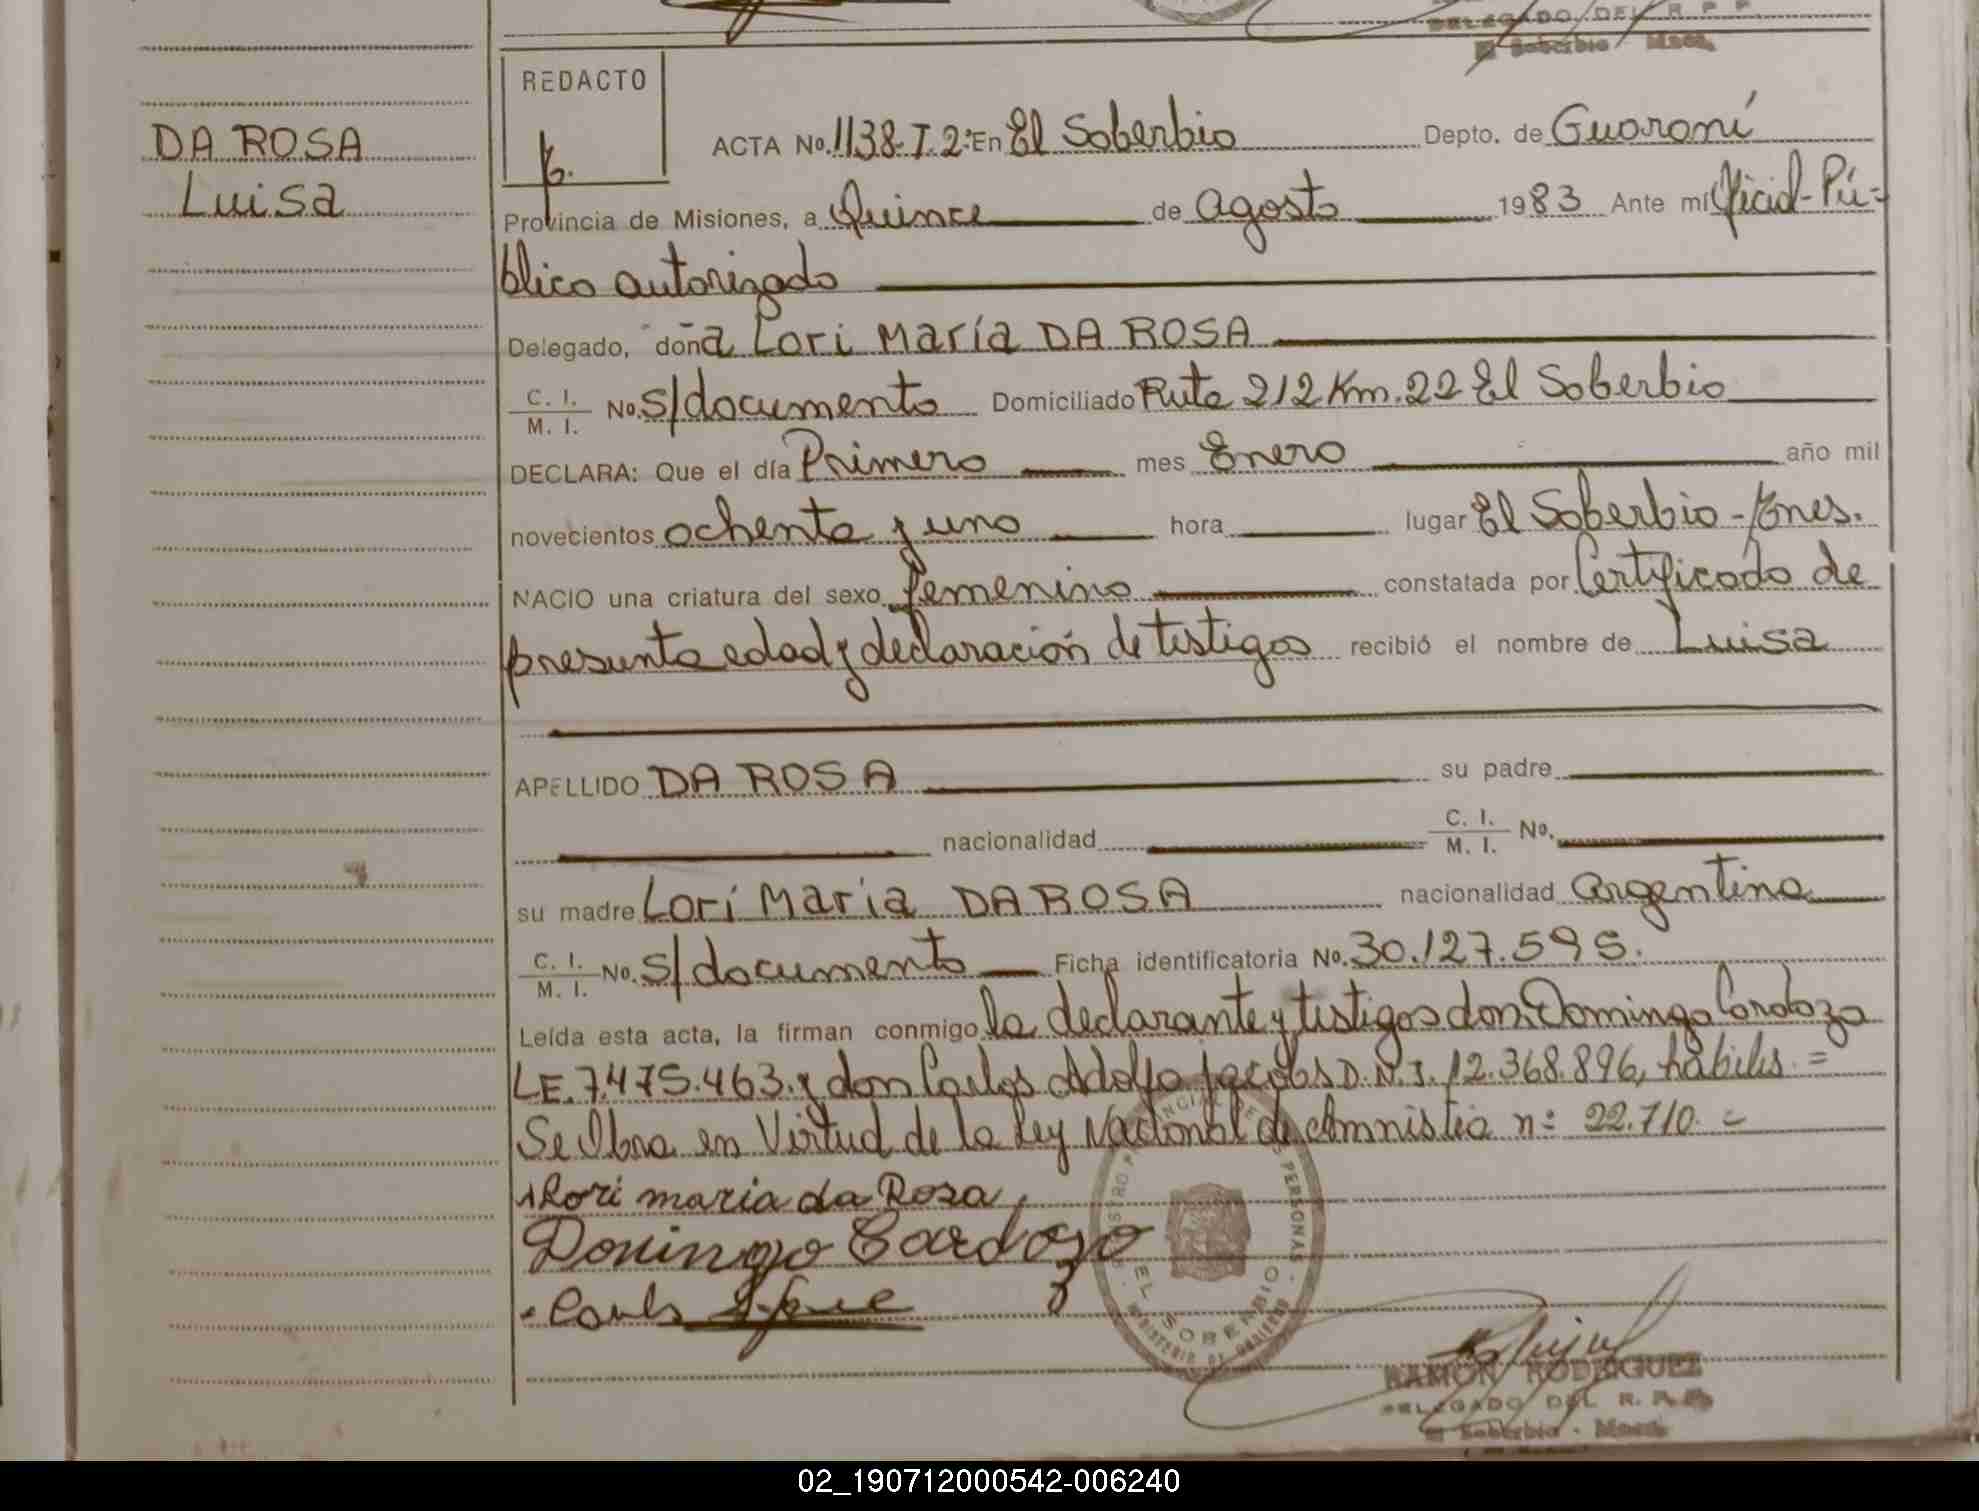 DELEGADO DEL R. P. P.
El Soberbio Mnes.
REDACTO
DA ROSA
Luisa
ACTA No. 1138-T.2º En El Soberbio Depto. de Guaraní
Provincia de Misiones, a Quince de Agosto 1983 Ante mí Oficial Pú=
blico autorizado
Delegado, doña Lori María DA ROSA
C. I. / M. I. No. s/documento Domiciliado Ruta 212 Km. 22 El Soberbio
DECLARA: Que el día Primero mes Enero año mil
novecientos ochenta y uno hora lugar El Soberbio - Mnes.
NACIO una criatura del sexo femenino constatada por Certificado de
presunta edad y declaración de testigos recibió el nombre de Luisa
APELLIDO DA ROSA su padre
nacionalidad C. I. / M. I. No.
su madre Lori María DA ROSA nacionalidad argentina
C. I. / M. I. No. s/documento Ficha identificatoria No. 30.127.595.
Leída esta acta, la firman conmigo la declarante y testigos don Domingo Cardozo
LE. 7.475.463. y don Carlos Adolfo Jacobs D.N.I. 12.368.896, hábiles. =
Se Obra en Virtud de la Ley Nacional de Amnistia n: 22.710. =
Lori maria da Rosa
Domingo Cardozo
Carlos
EL SOBERBIO
MINISTERIO DE GOBIERNO
RAMON RODRIGUEZ
DELEGADO DEL R. P. P.
El Soberbio - Mnes.
02_190712000542-006240